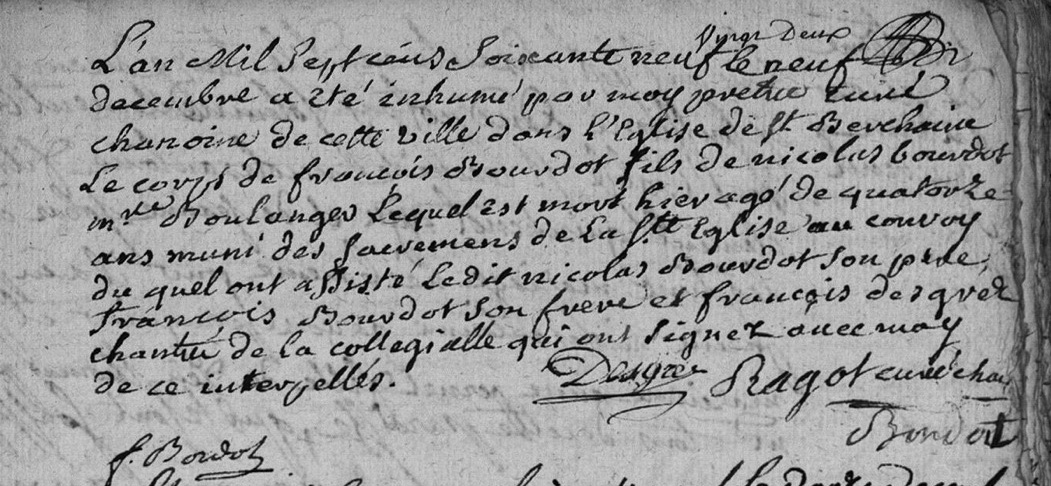 vingt Deux
L'an Mil Sept cens Soixante neuf le neuf
decembre a été inhumé par moy pretre curé
chanoine de cette ville dans l'Eglise de St Berchaire
Le corps de francois Bourdot fils de nicolas bourdot
mtre Boulanger Lequel est mort hier agé de quatorze
ans muni des Sacremens de La Ste Eglise au convoy
du quel ont assisté Ledit nicolas Bourdot son pere,
francois Bourdot son frere et francois desgrez
chantre de la collegialle qui ont signez avec moy
de ce interpelles.
Desgrez Ragot curé chan
Bourdot
f. Bourdot